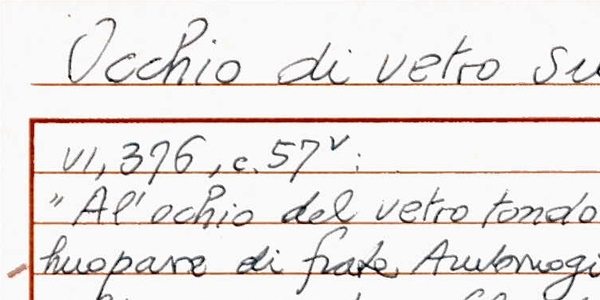 Occhio di vetro su
VI, 396, c. 57v:
"Al'ochio del vetro tondo
huopare di frate Ambruogi